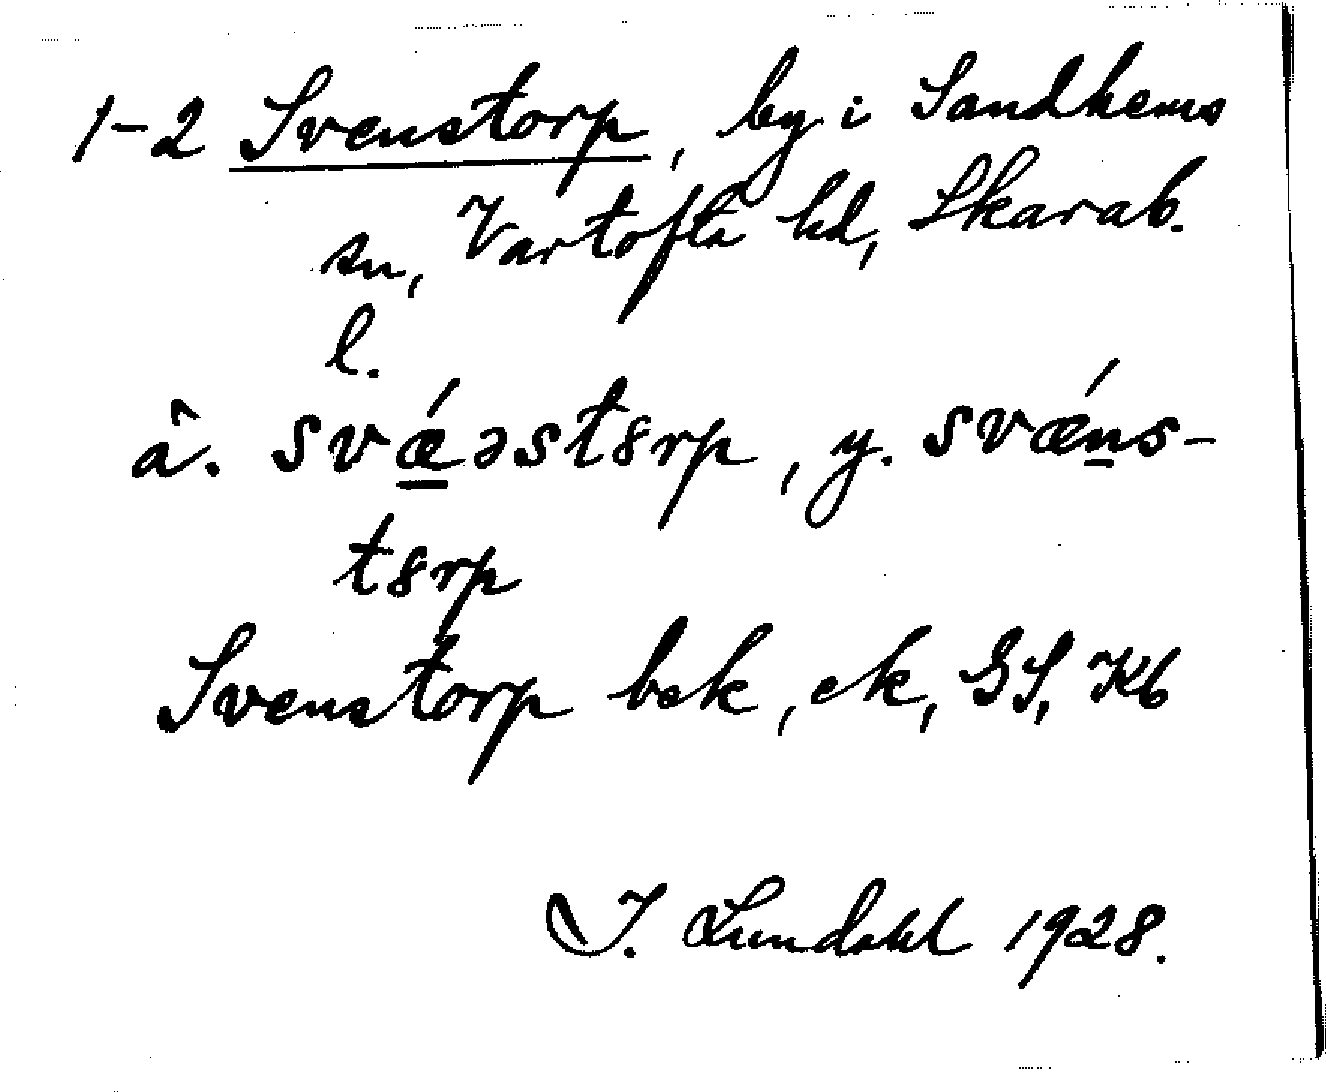 1-2 Svenstorp, by i Sandhems
sn, Vartofta hd, Skarab.
l.
ä. svǽəst8rp, y. svǽns-
t8rp
Svenstorp bsk, ek, GS, Kb
I. Lundahl 1928.